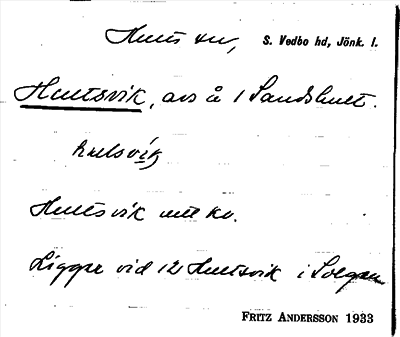 Hults sn, S. Vedbo hd, Jönk. l.
Hultsvik, avs å 1 Sandshult.
hultsvik
Hultsvik utt kv.
Ligger vid 12 Hultsvik i Solgen
FRITZ ANDERSSON 1933